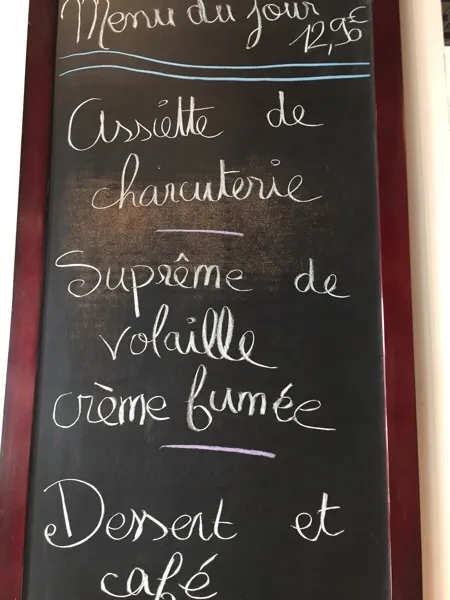 Menu du jour
12,90€
Assiette de
charcuterie
Suprême de
volaille
crème fumée
Dessert et
café